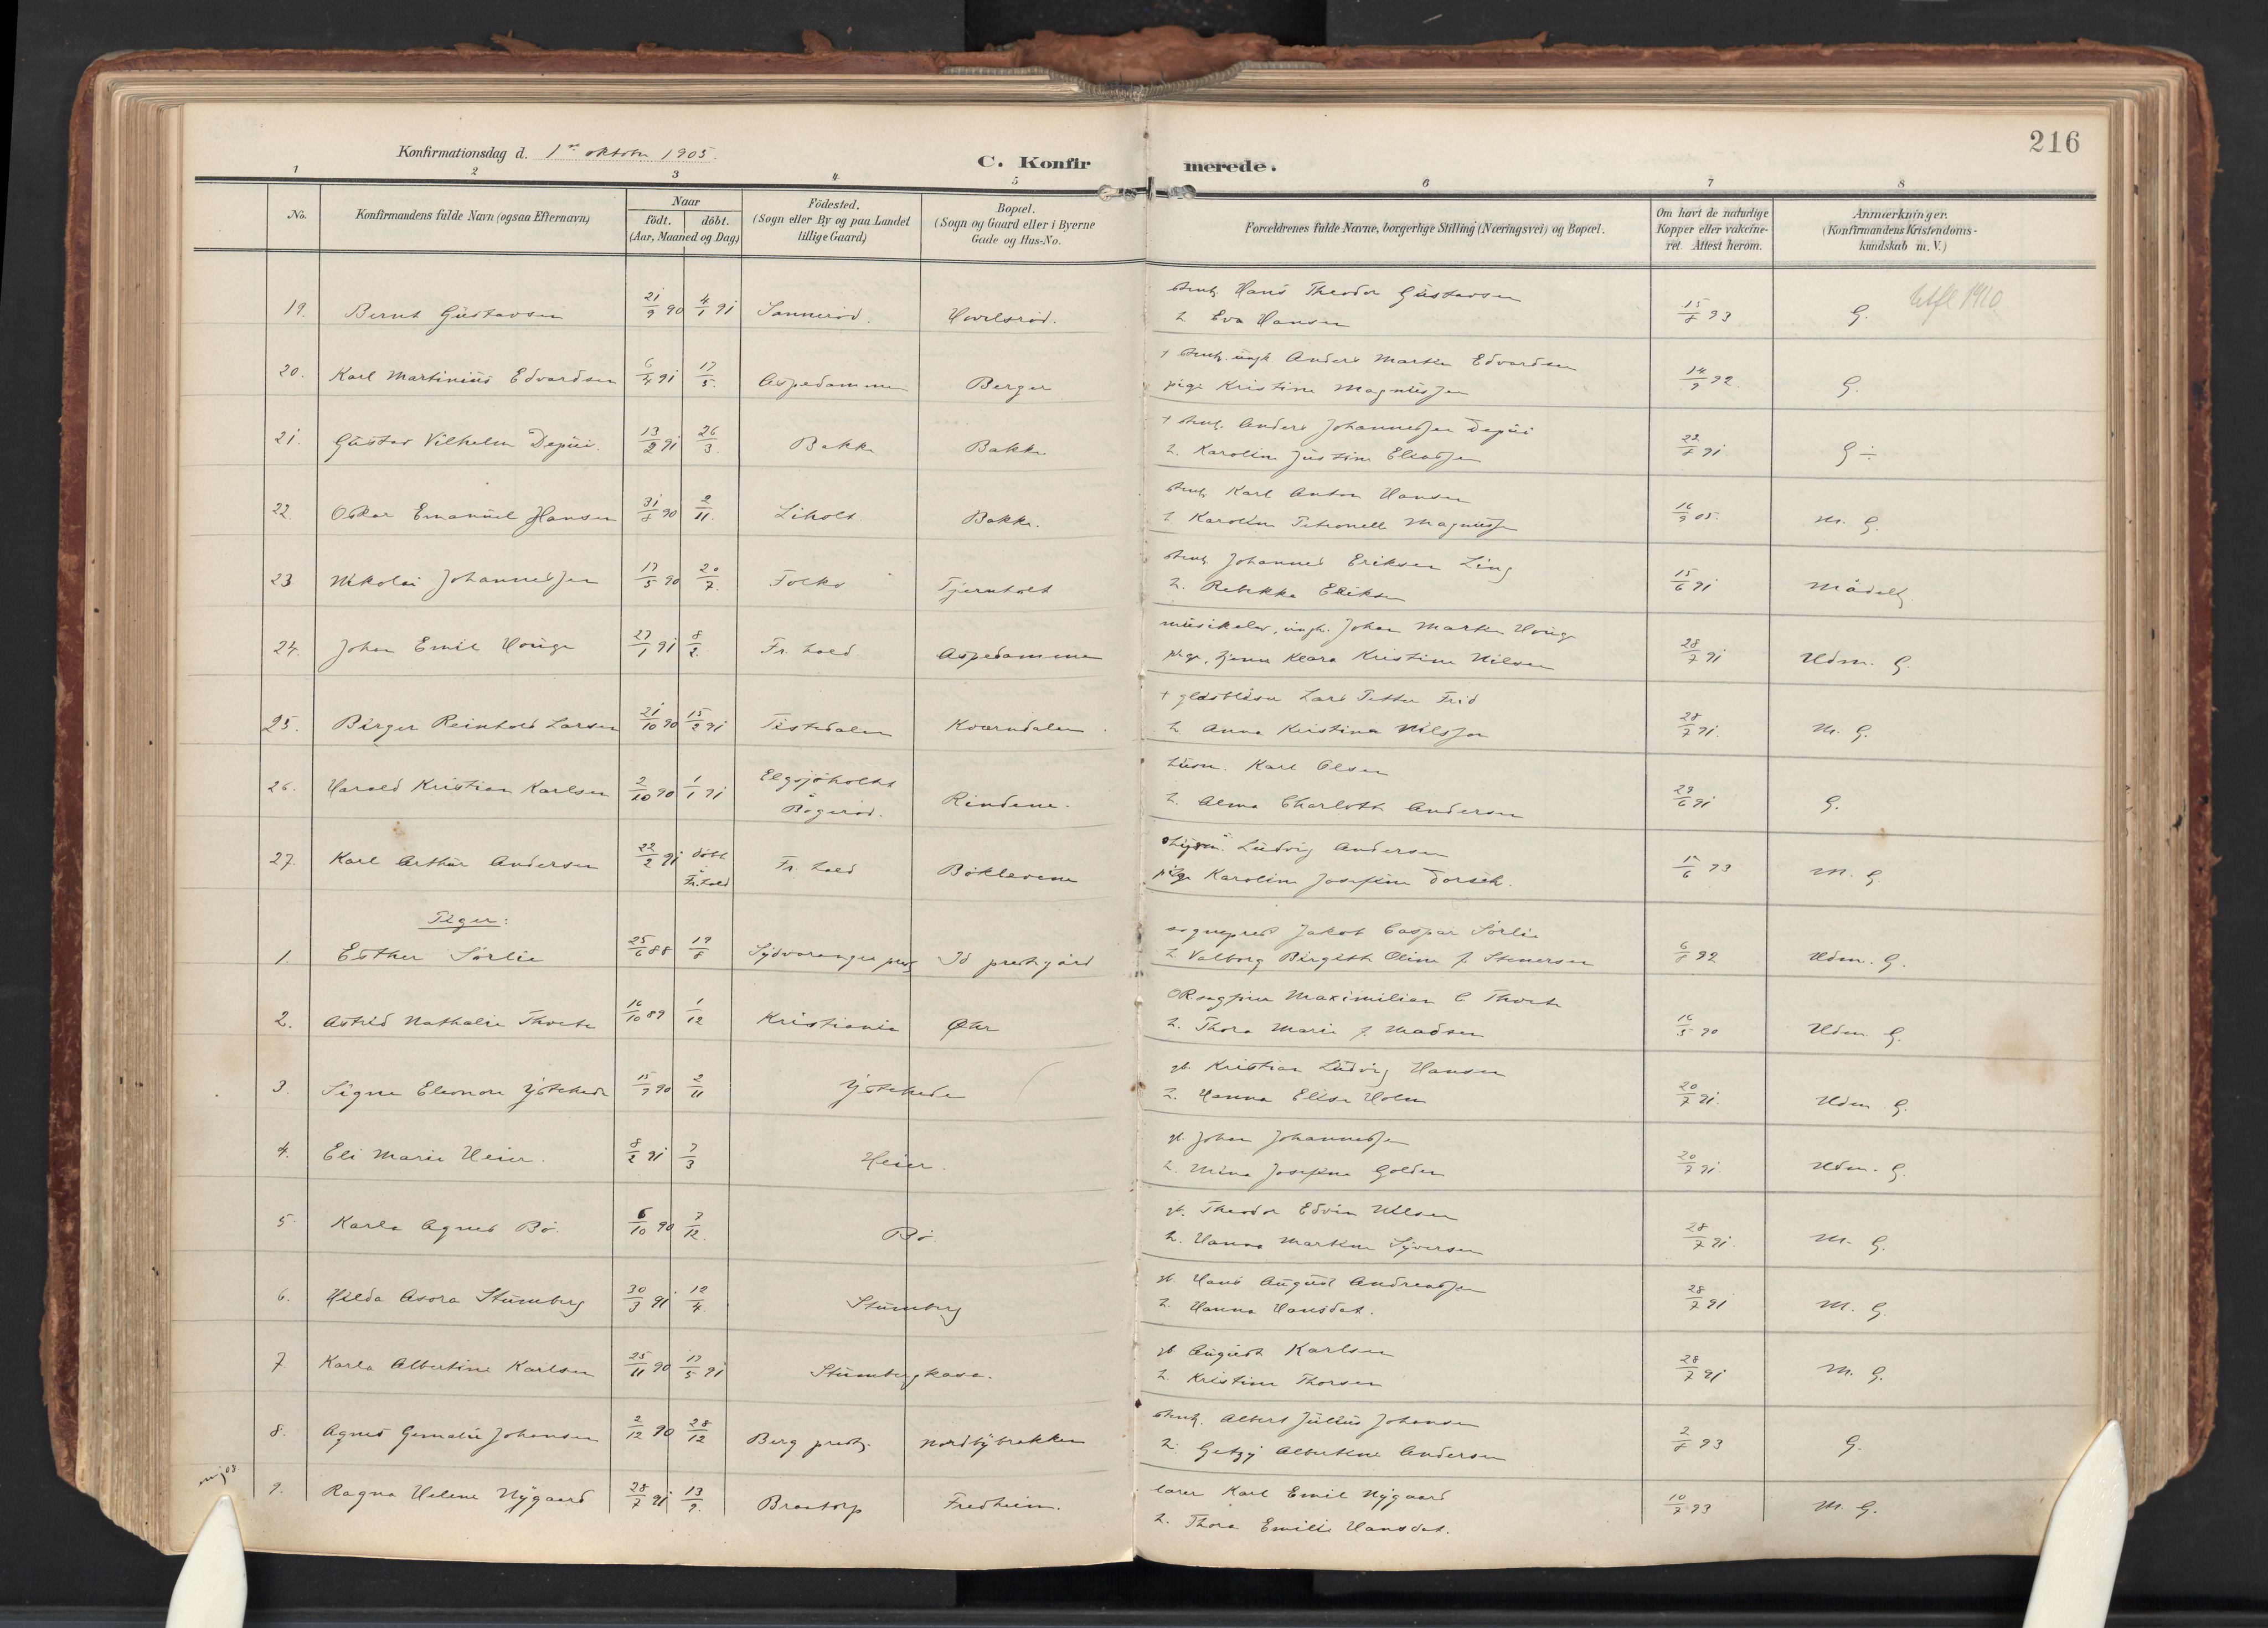 216
Konfirmationsdag d. 1ste oktober 1905.
C. Konfirmerede.
1 2 3 4 5 6 7 8
No. Konfirmandens fulde Navn (ogsaa Efternavn) Naar födt. döbt. (Aar, Maaned og Dag) Födested. (Sogn eller By og paa Landet tillige Gaard) Bopæl. (Sogn og Gaard eller i Byerne Gade og Hus-No. Forældrenes fulde Navne, borgerlige Stilling (Næringsvei) og Bopæl. Om havt de naturlige Kopper eller vakcineret. Attest herom. Anmærkninger. (Konfirmandens Kristendomskundskab m. V.)
Hans Theodor Gustavsen
19. Bernt Gustavsen 21/9 90 4/1 91 Sannerød. 15/8 93 G. Utfl 1910
h. Eva Hansen
+ ungk Anders Martin Edvardsen
20. Karl Martinius Edvardsen 6/4 91 17/5. Aspedammen Berger 14/9 92. G.
pige Kristine Magnussen
+ Anders Johannessen Depui
21. Gustav Vilhelm Depui. 13/2 91 26/3. Bakke Bakke 22/8 91 G ÷
h. Karoline Justine Eliassen
Karl Anton Hansen
22. Oskar Emanuel Hansen 31/8 90 2/11. Liholt Bakke. 16/9 05. M. G.
h Karoline Petronelle Magnussen
Johannes Eriksen Ling
23 Nikolai Johannessen 17/5 90 20/7. Folkö Tjernholt 15/6 91 Mådelg
h. Rebekka Eriksen
musikelev, ungk. Johan Martin Houge
24. Johan Emil Houge 27/1 91 8/2. Fr. hald Aspedammen 28/7 91 Udm. G.
pige, Klara Kristine Nilsen
+ glasblåser Lars Petter Frid
25. Birger Reinhold Larsen 21/10 90 15/2 91 Tistedalen Kvarndalen 28/7 91. M. G.
h. Anna Kristina Nilsson
husm. Karl Olsen
26. Harald Kristian Karlsen 2/10 90 1/1 91 Elgsjøholtet Bøgerød. Rindene. 29/6 91 G.
h. Alma Charlotte Andersen
Ludvig Andersen
27. Karl Arthur Andersen 22/2 91 döbt Fr. hald Fr. hald Böklevene 17/6 93 M. G.
pige Karoline Josefine Dorsch.
Piger:
sogneprest Jakob Caspar Sörlie
1. Esther Sörlie 25/6 88 19/8 Sydvaranger prestg Id prestegård 6/8 92 Udm. G.
h. Valborg Birgitte Oline f. Stenersen
ORsagfører Maximilian C Thorte
2. Astrid Nathalie Thorte 16/10 89 1/12 Kristiania Øhr 16/5 90 Udm. G.
h. Thora Marie f. Madsen
gb. Kristian Ludvig Hansen
3. Signe Eleonore Ystehede 15/9 90 2/11 Ystehede 20/7 91. Udm G.
h. Hanna Elise Holm
gb. Johan Johannessen
4. Eli Marie Heier. 8/2 91 7/3 Heier. 20/7 91. Udm. G.
h. Mina Josefine Golden
gb. Theodor Edvin Nilsen
5. Karla Agnes Bö. 6/10 90 7/12. Bö. 28/7 91. M. G.
h. Hanna Martine Syversen
gb Hans August Andreassen
6. Hilda Asora Stumberg 30/3 91 12/4. Stumberg 28/7 91 M. G.
h. Hanna Hansdat.
gb August Karlsen
7. Karla Albertine Karlsen 25/11 90 17/5 91 Stumbergkasa. 28/7 91 M. G.
h. Kristine Thorsen
Albert Julius Johansen
8. Agnes Gemalie Johansen 2/12 90 28/12 Berg prestg. Nordbybrekken 2/8 93 G.
h. Getzy Albertine Andersen
lærer Karl Emil Nygaard
9. Ragna Helene Nygaard 28/7 91 13/9. Braatorp Fredheim. 10/7 93 M. G.
h. Thora Emilie Hansdat.